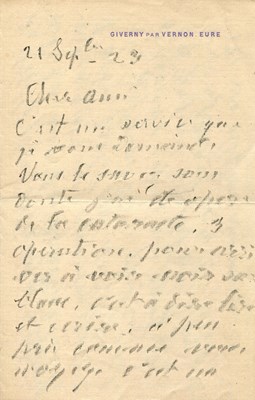 GIVERNY PAR VERNON. EURE
21 Sept 23
Cher ami
C'est un service que
je vous demande
Vous le savez sans
doute j'ai été opéré
de la cataracte, 3
opération, pour arri
ver à voir noir sur
blanc, c'est à dire lire
et écrire, à peu
près comme vous
voyez c'est un